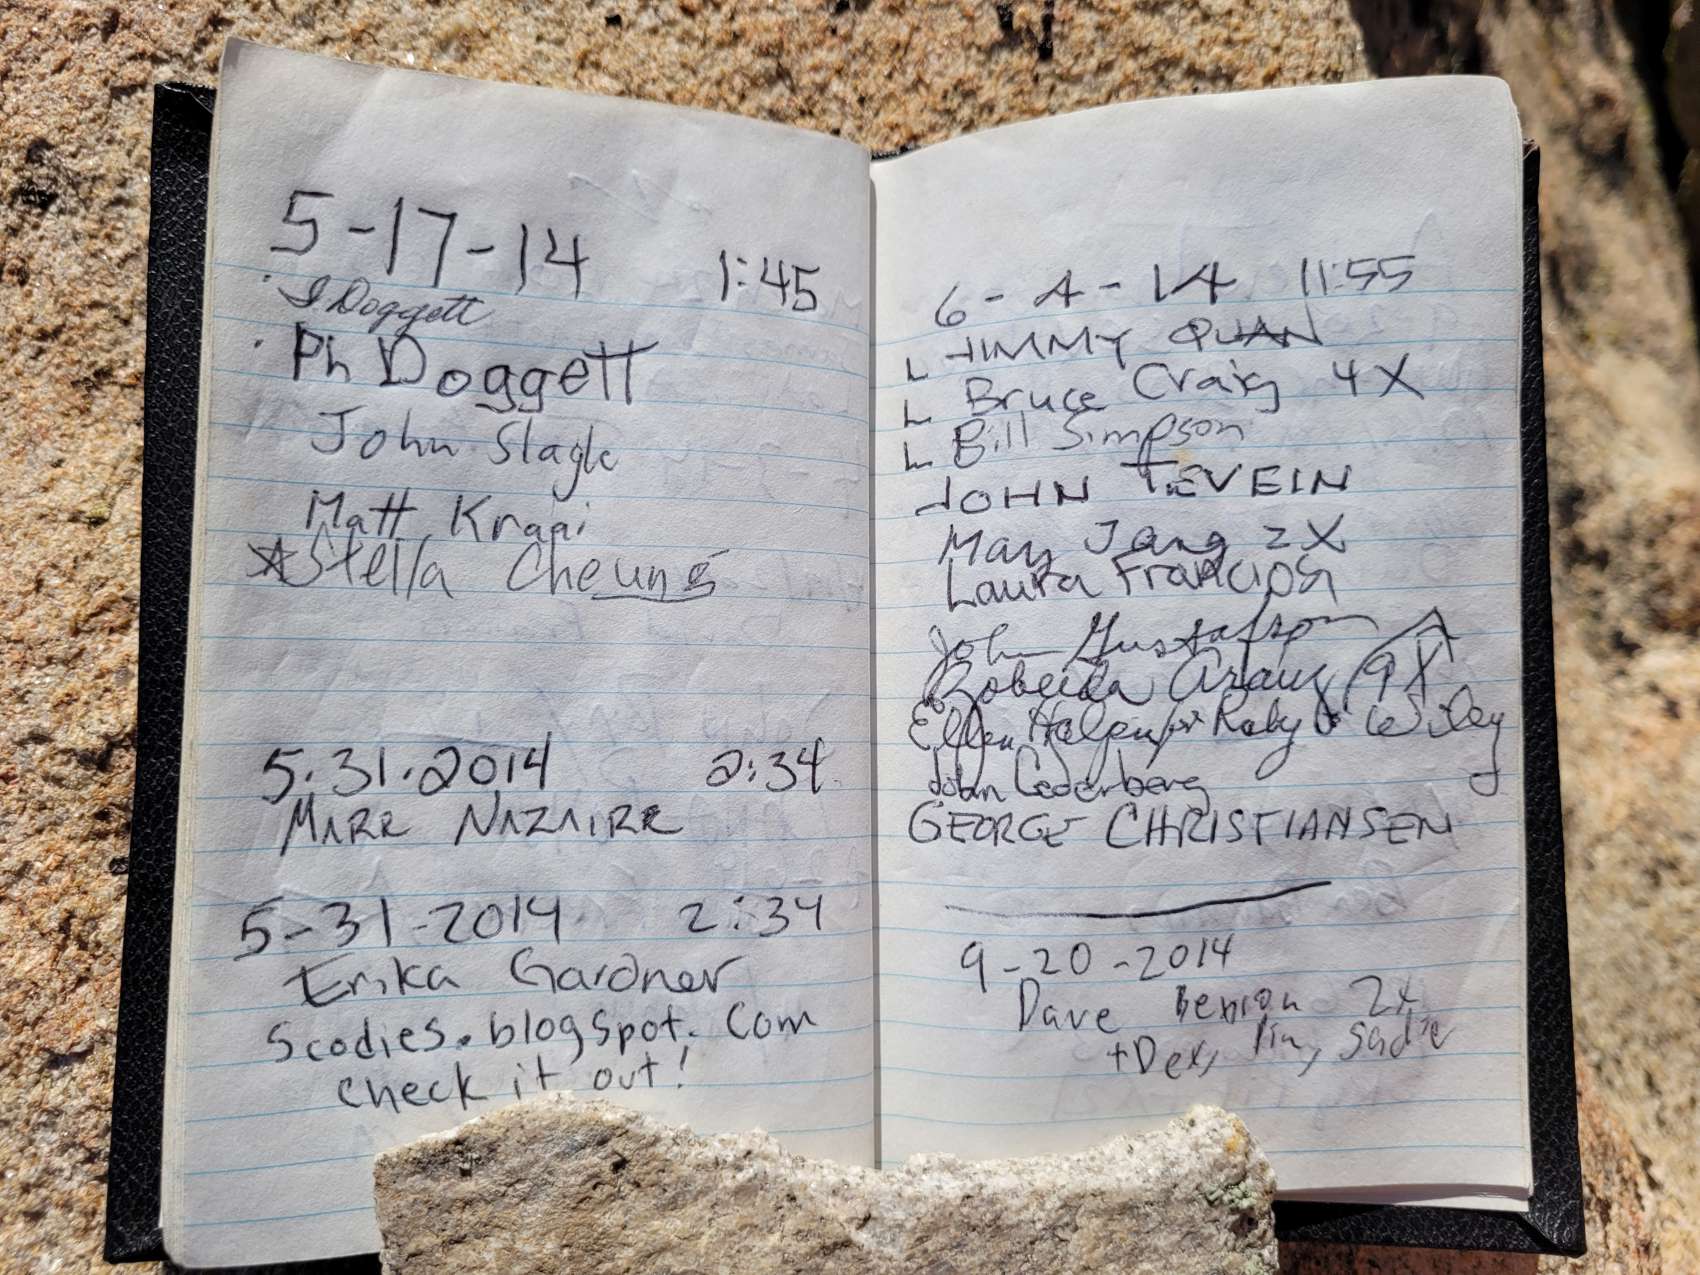 5-17-14 1:45
J Doggett
Ph Doggett
John Slagle
Matt Kraai
Stella Cheung
5.31.2014 2:34
5-31-2014 2:34
Erika Gardner
scodies.blogspot.com
check it out!
6-4-14 11:55
JIMMY QUAN
Bruce Craig 4X
Bill Simpson
JOHN TEVEIN
Mary Jang 2X
Laura Franciosi
John Gustafson
9X
Ellen Wiley
John Cederberg
GEORGE CHRISTIANSEN
9-20-2014
Dave 2x
+Dex, Sadie